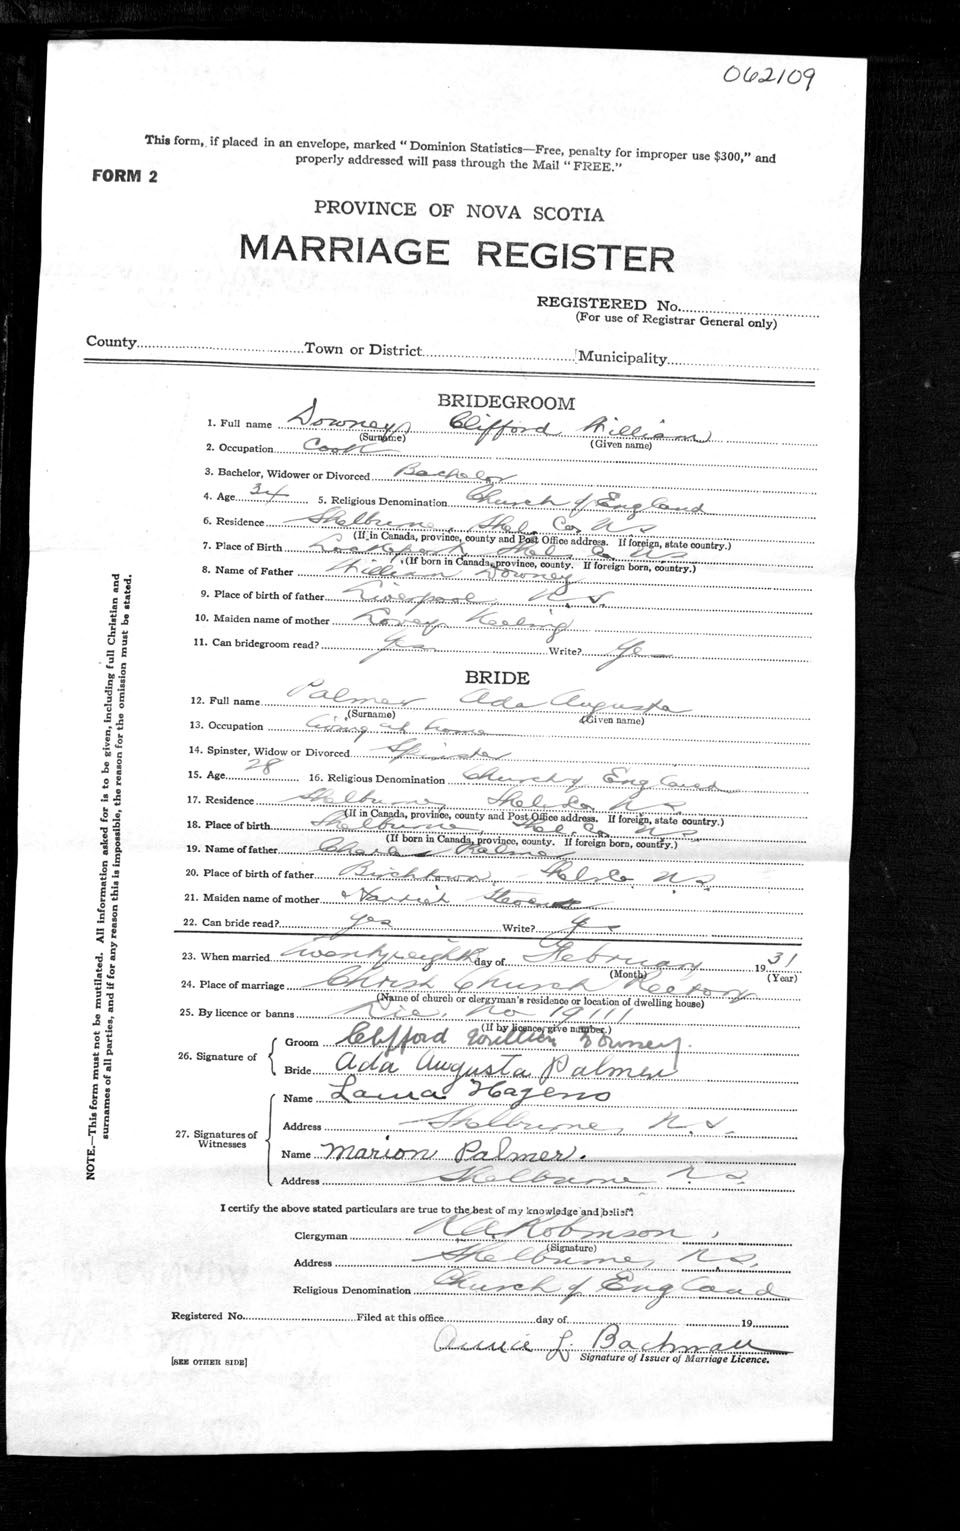 062109
This form, if placed in an envelope, marked "Dominion Statistics—Free, penalty for improper use $300," and
properly addressed will pass through the Mail "FREE."
FORM 2
PROVINCE OF NOVA SCOTIA
MARRIAGE REGISTER
REGISTERED No.
(For use of Registrar General only)
County Town or District Municipality
BRIDEGROOM
1. Full name Downey, Clifford William
(Surname) (Given name)
2. Occupation Cook
3. Bachelor, Widower or Divorced Bachelor
4. Age 34 5. Religious Denomination Church of England
6. Residence Shelburne, Shel. Co. N.S.
(If in Canada, province, county and Post Office address. If foreign, state country.)
7. Place of Birth Lockeport Shel. Co. N.S.
(If born in Canada, province, county. If foreign born, country.)
8. Name of Father William Downey
9. Place of birth of father Liverpool, N.S.
10. Maiden name of mother Keeling
11. Can bridegroom read? Yes Write? Yes
BRIDE
12. Full name Palmer Ada Augusta
(Surname) (Given name)
13. Occupation Living at home
14. Spinster, Widow or Divorced Spinster
15. Age 28 16. Religious Denomination Church of England
17. Residence Shelburne, Shel. Co. N.S.
(If in Canada, province, county and Post Office address. If foreign, state country.)
18. Place of birth Shelburne, Shel. Co. N.S.
(If born in Canada, province, county. If foreign born, country.)
19. Name of father Charles Palmer
20. Place of birth of father Birchtown, Shel. Co. N.S.
21. Maiden name of mother Harriet
22. Can bride read? Yes Write? Yes
23. When married Twentyeighth day of February 1931
(Month) (Year)
24. Place of marriage Christ Church Rectory
(Name of church or clergyman's residence or location of dwelling house)
25. By licence or banns Lic. No 19111
(If by licence, give number.)
26. Signature of
Groom Clifford William Downey.
Bride Ada Augusta Palmer
27. Signatures of Witnesses
Name Laura Hagens
Address Shelburne, N.S.
Name Marion Palmer.
Address Shelburne N.S.
I certify the above stated particulars are true to the best of my knowledge and belief:
Clergyman Robinson,
(Signature)
Address Shelburne, N.S.
Religious Denomination Church of England
Registered No. Filed at this office day of 19
Annie L. Bachman
Signature of Issuer of Marriage Licence.
[SEE OTHER SIDE]
NOTE.—This form must not be mutilated. All information asked for is to be given, including full Christian and
surnames of all parties, and if for any reason this is impossible, the reason for the omission must be stated.